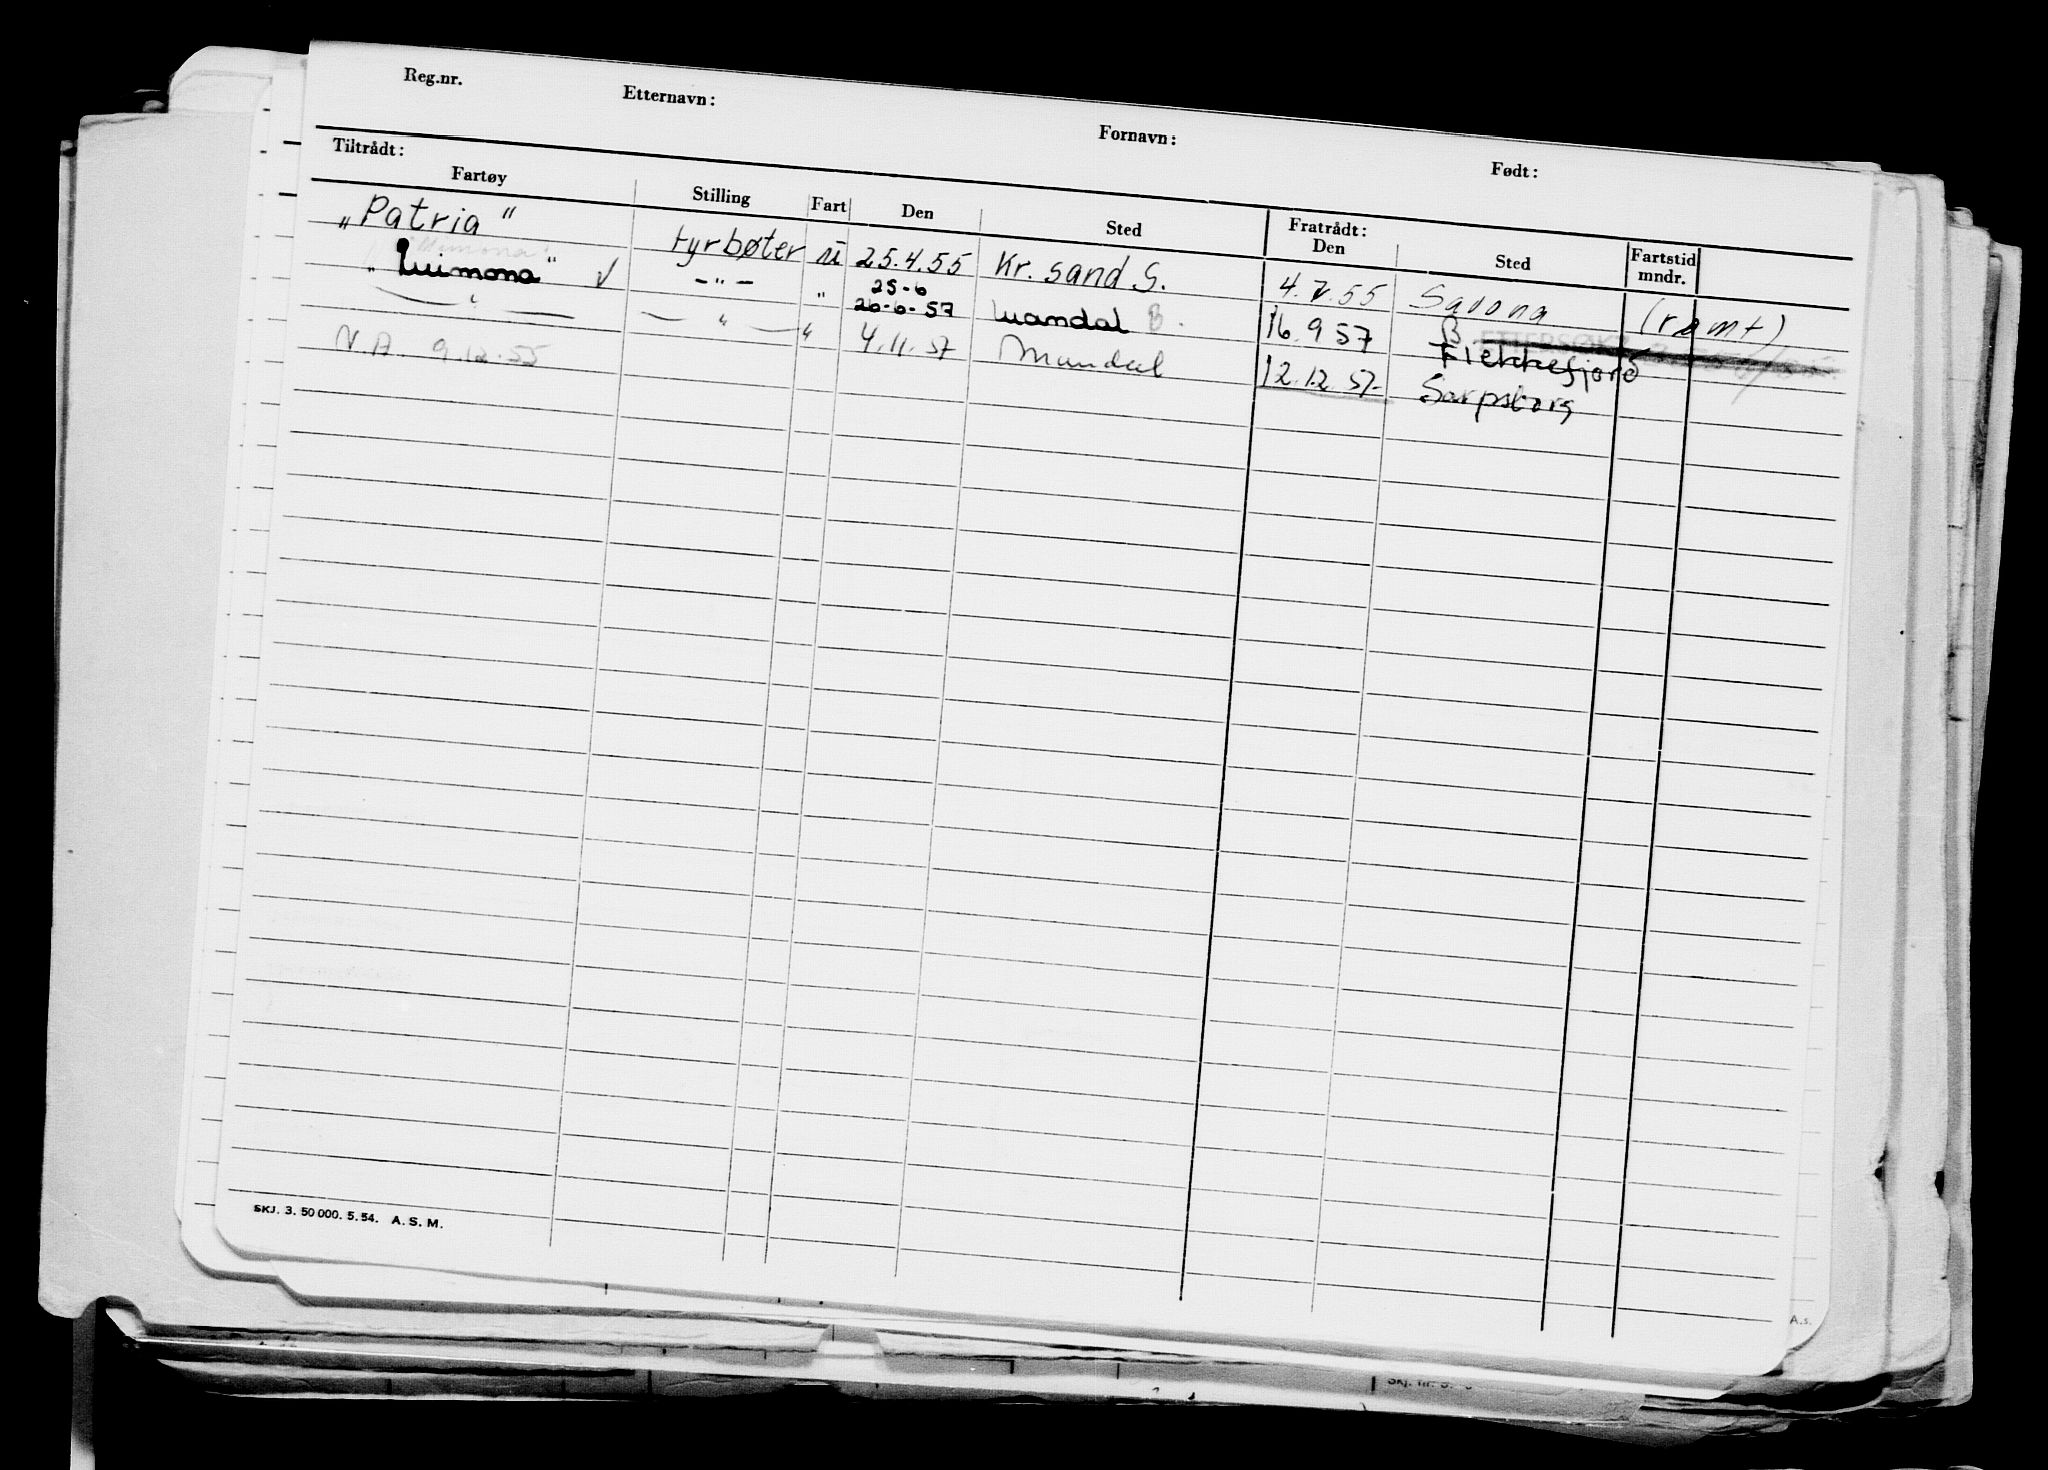 Reg.nr. Etternavn: Fornavn: Født:
Tiltrådt: Fratrådt:
Fartøy Stilling Fart Den Sted Den Sted Fartstid mndr.
„Patria" fyrbøter u 25.4.55 Kr. sand S. 4.7.55 Savona (rømt)
„ Mimona" √ -"- " 25-6 26-6-57 Mandal B. 16.9 57 B Flekkefjord
" " " 4.11.57 Mandal 12.12.57- Sarpsborg
N.A. 9.12.55
SKJ. 3. 50 000. 5. 54. A. S. M.
A.s.